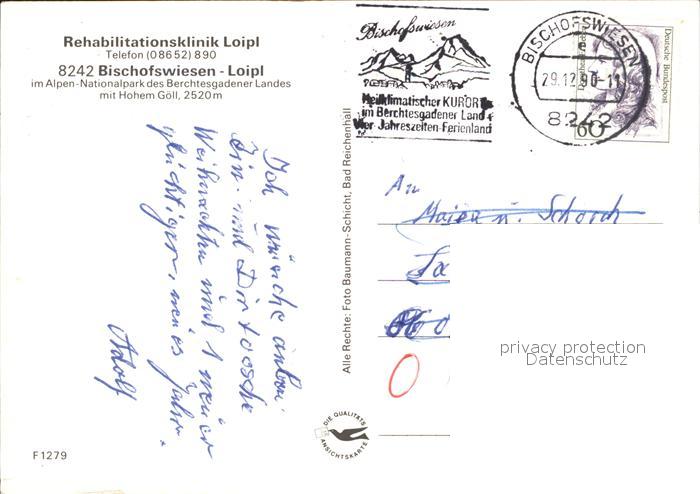 Rehabilitationsklinik Loipl
Telefon (08652) 890
8242 Bischofswiesen - Loipl
im Alpen-Nationalpark des Berchtesgadener Landes
mit Hohem Göll, 2520 m
Bischofswiesen
Heilklimatischer KURORT
im Berchtesgadener Land
Vier-Jahreszeiten-Ferienland
BISCHOFSWIESEN
29.12.90-11
8242
Deutsche Bundespost
60
An
Maier u. Schorch
privacy protection
Datenschutz
Ich wünsche
Dir
Weihnachten und 1 neues
Jahr.
Adolf
Alle Rechte: Foto Baumann-Schicht, Bad Reichenhall
DIE QUALITÄTS
ANSICHTSKARTE
F 1279